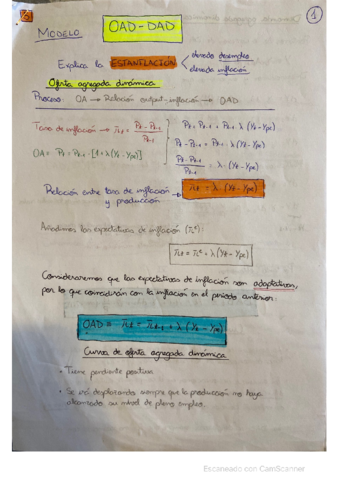 1
MODELO OAD-DAD
Explica la ESTANFLACIÓN
elevado desempleo
elevada inflación
Oferta agregada dinámica
Proceso: OA → Relación output-inflación → OAD
Tasa de inflación → πt = (Pt - Pt-1) / Pt-1
OA = Pt = Pt-1 · [1 + λ(Yt - Ype)]
Pt = Pt-1 + Pt-1 · λ(Yt - Ype)
Pt - Pt-1 = Pt-1 · λ(Yt - Ype)
(Pt - Pt-1) / Pt-1 = λ · (Yt - Ype)
Relación entre tasa de inflación y producción → πt = λ · (Yt - Ype)
Añadimos las expectativas de inflación (πe):
πt = πe + λ(Yt - Ype)
Consideraremos que las expectativas de inflación son adaptativas,
por lo que coincidirán con la inflación en el período anterior:
OAD = πt = πt-1 + λ(Yt - Ype)
Curva de oferta agregada dinámica
• Tiene pendiente positiva
• Se irá desplazando siempre que la producción no haya
alcanzado su nivel de pleno empleo.
Escaneado con CamScanner